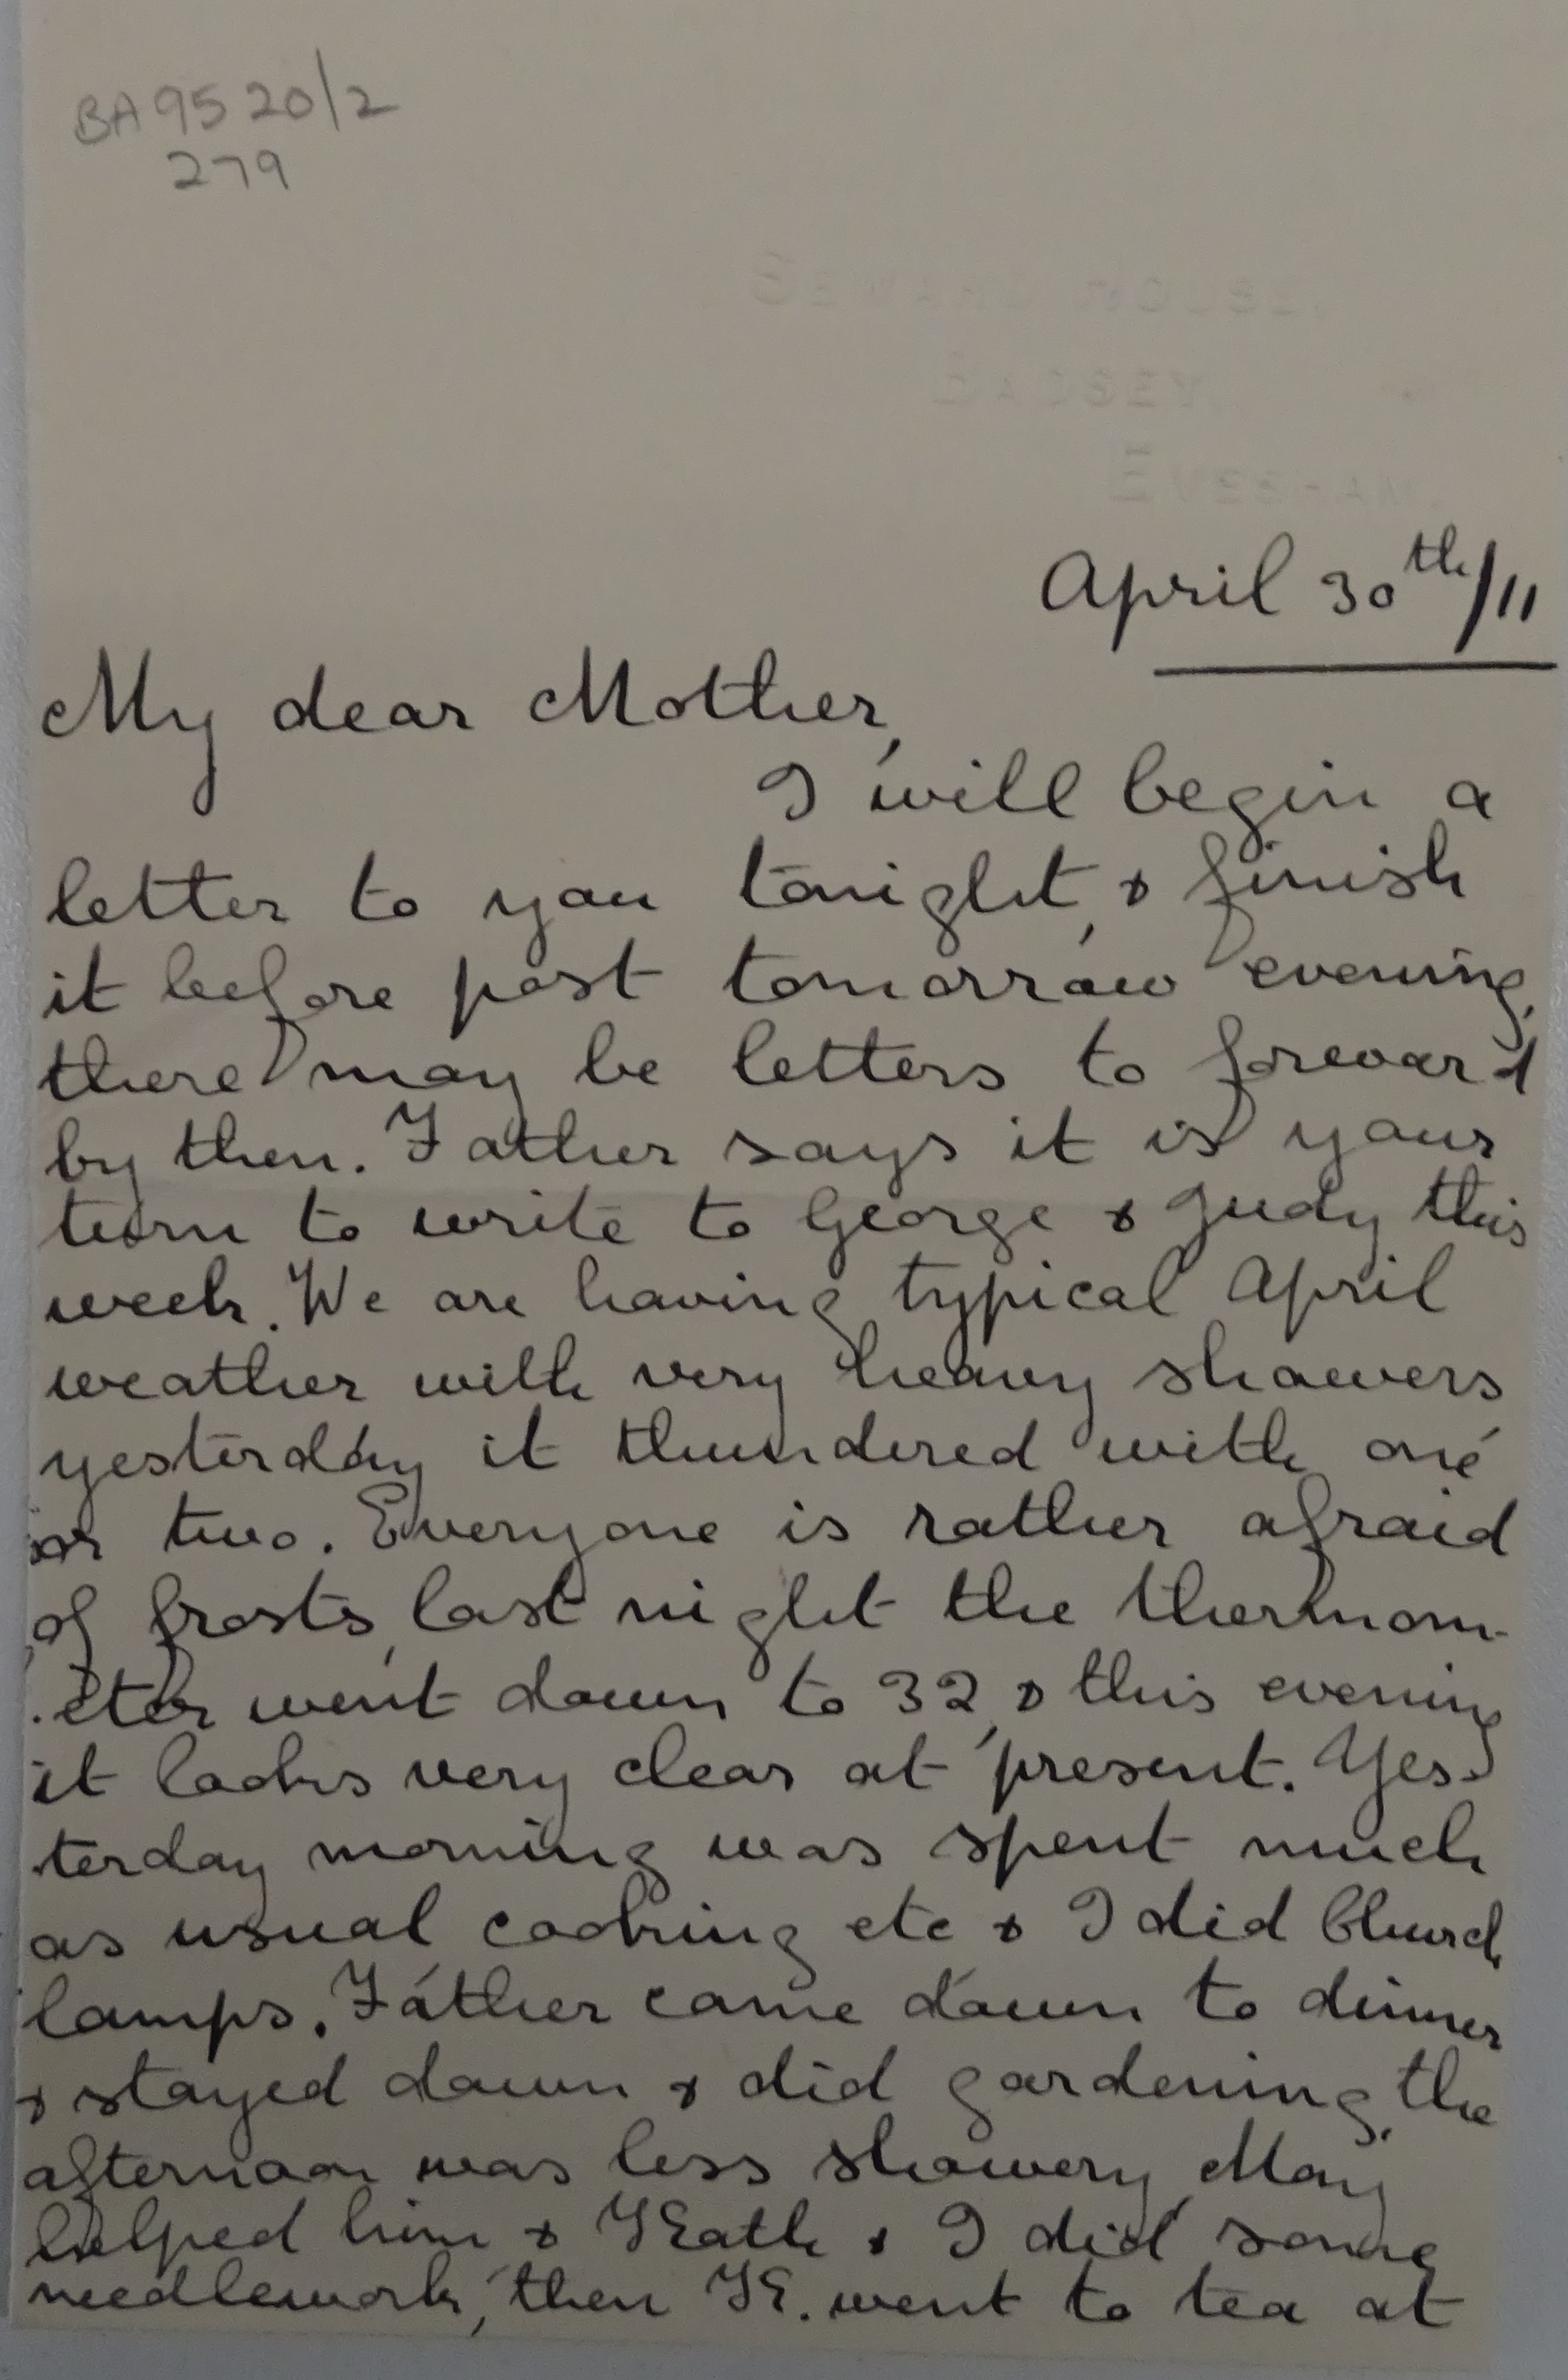 BA 9520/2
279
April 30th/11
My dear Mother,
I will begin a
letter to you tonight, & finish
it before post tomorrow evening,
there may be letters to forward
by then. Father says it is your
turn to write to George & Judy this
week. We are having typical April
weather with very heavy showers
yesterday it thundered with one
or two. Everyone is rather afraid
of frosts, last night the thermom-
eter went down to 32, & this evening
it looks very clear at present. Yes-
terday morning was spent much
as usual cooking etc & I did Church
lamps. Father came down to dinner
& stayed down & did gardening, the
afternoon was less showery, May
helped him & Heath & I did some
needlework, then H. went to tea at